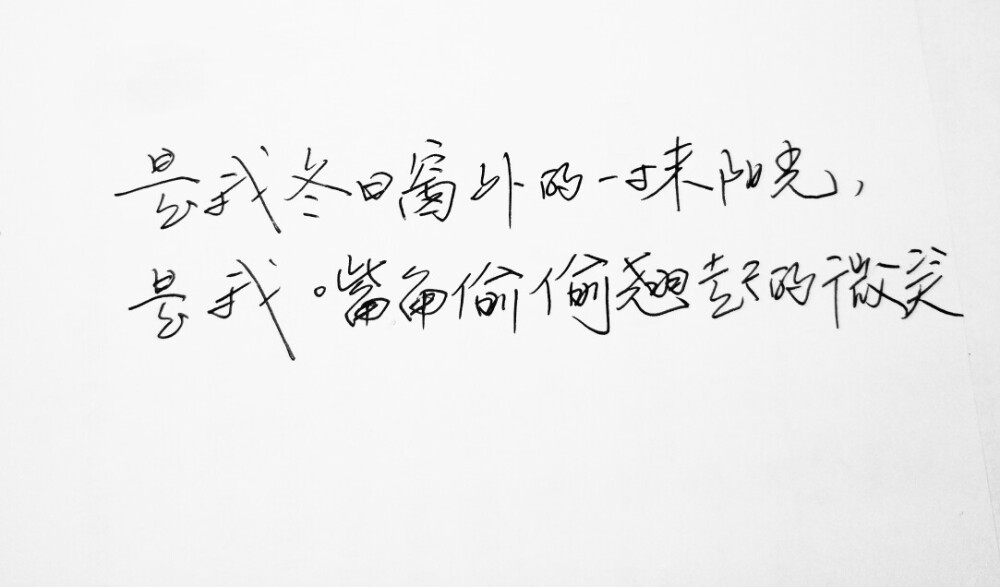 是我冬日窗外的一抹阳光，
是我嘴角偷偷翘起的微笑